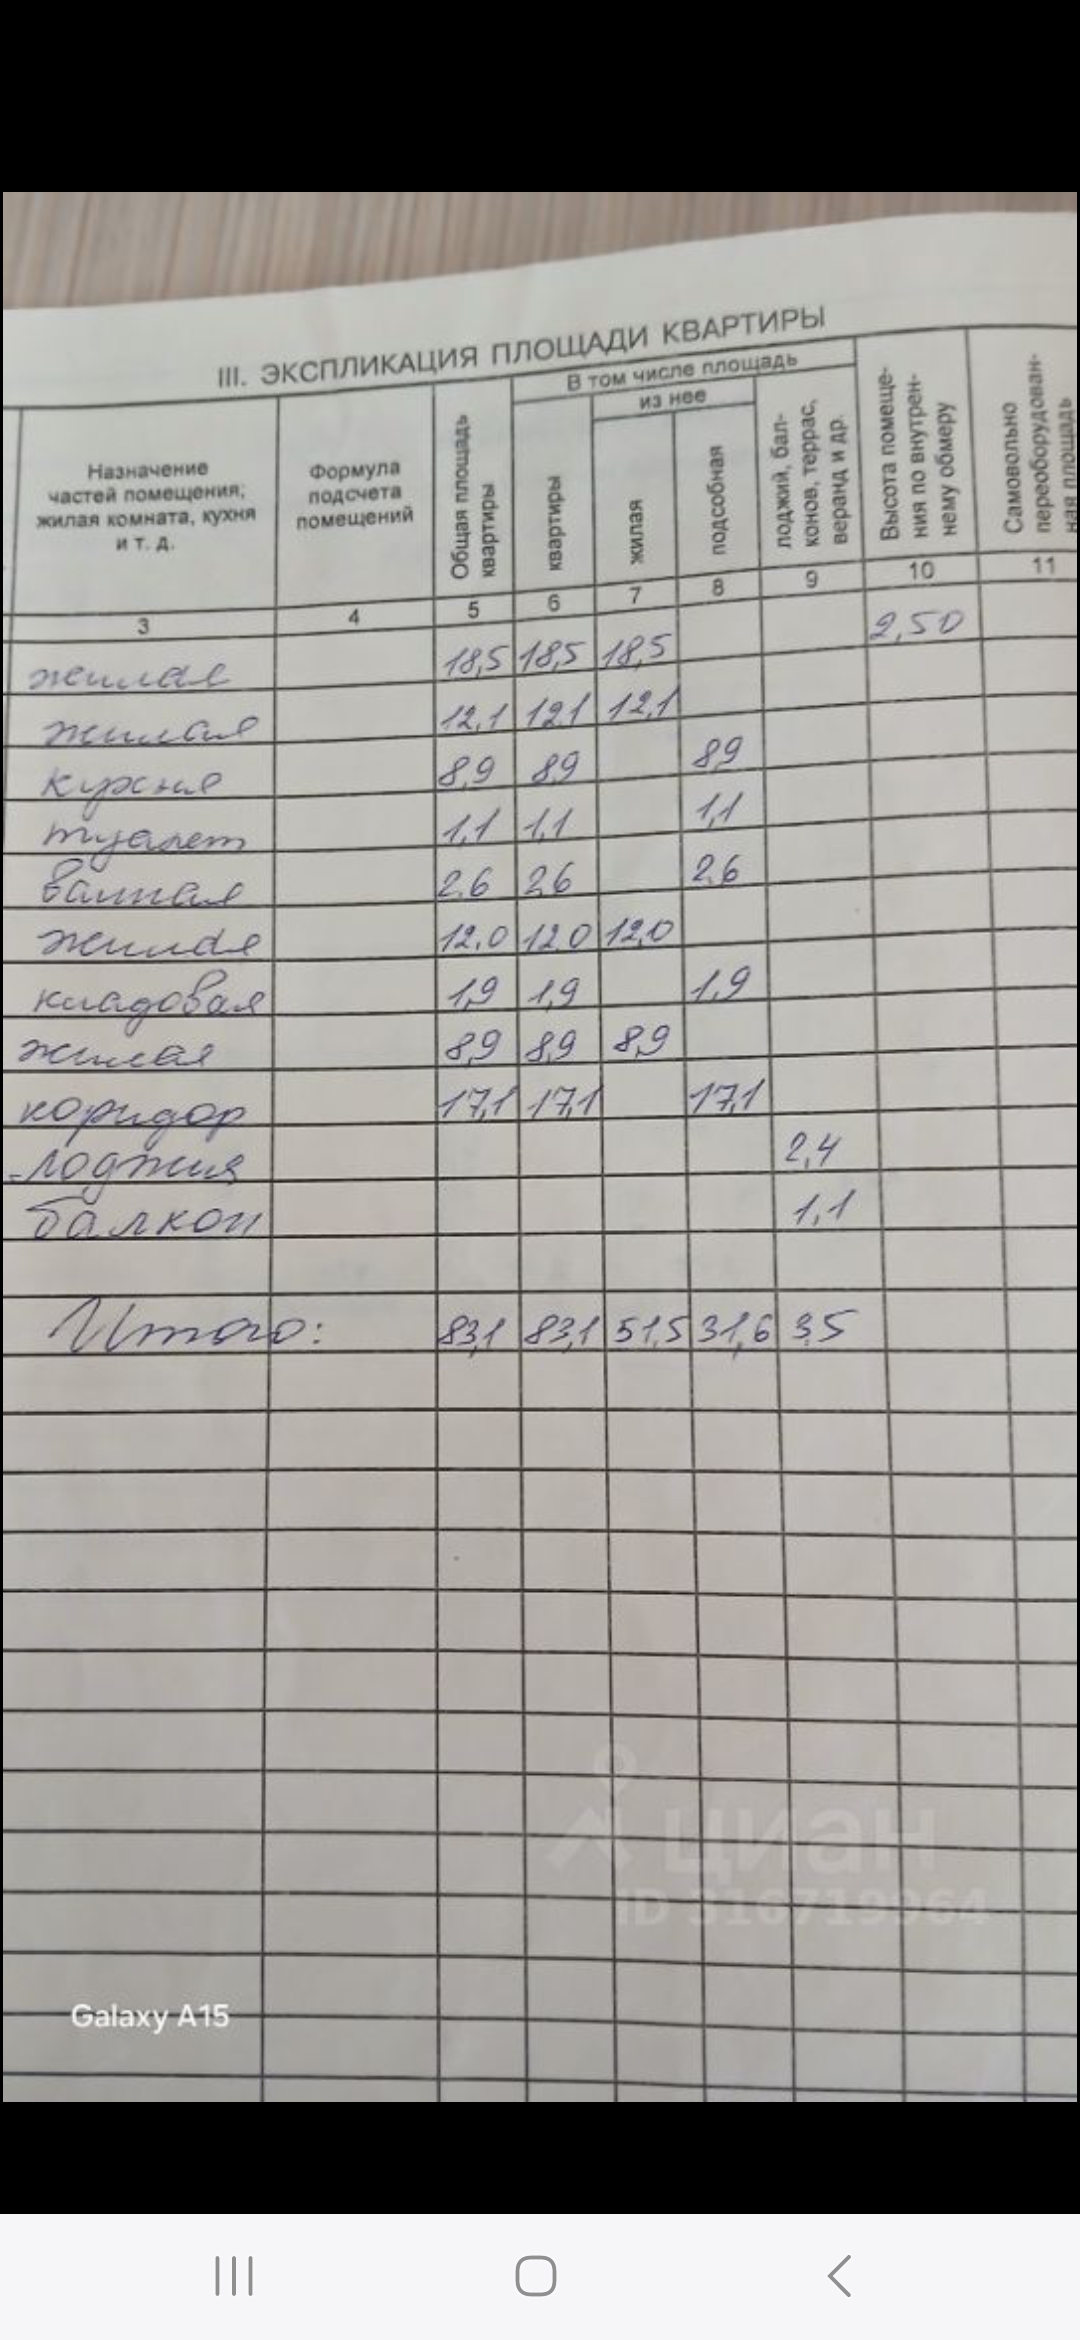 III. ЭКСПЛИКАЦИЯ ПЛОЩАДИ КВАРТИРЫ
Назначение
частей помещения;
жилая комната, кухня
и т. д.
Формула
подсчета
помещений
Общая площадь
квартиры
В том числе площадь
квартиры
из нее
жилая
подсобная
лоджий, бал-
конов, террас,
веранд и др.
Высота помеще-
ния по внутрен-
нему обмеру
Самовольно
переоборудован-
ная площадь
3 4 5 6 7 8 9 10 11
жилая 18,5 18,5 18,5 2,50
жилая 12,1 12,1 12,1
кухня 8,9 8,9 8,9
туалет 1,1 1,1 1,1
ванная 2,6 2,6 2,6
жилая 12,0 12,0 12,0
кладовая 1,9 1,9 1,9
жилая 8,9 8,9 8,9
коридор 17,1 17,1 17,1
лоджия 2,4
балкон 1,1
Итого: 83,1 83,1 51,5 31,6 3,5
циан
ID 316719964
Galaxy A15